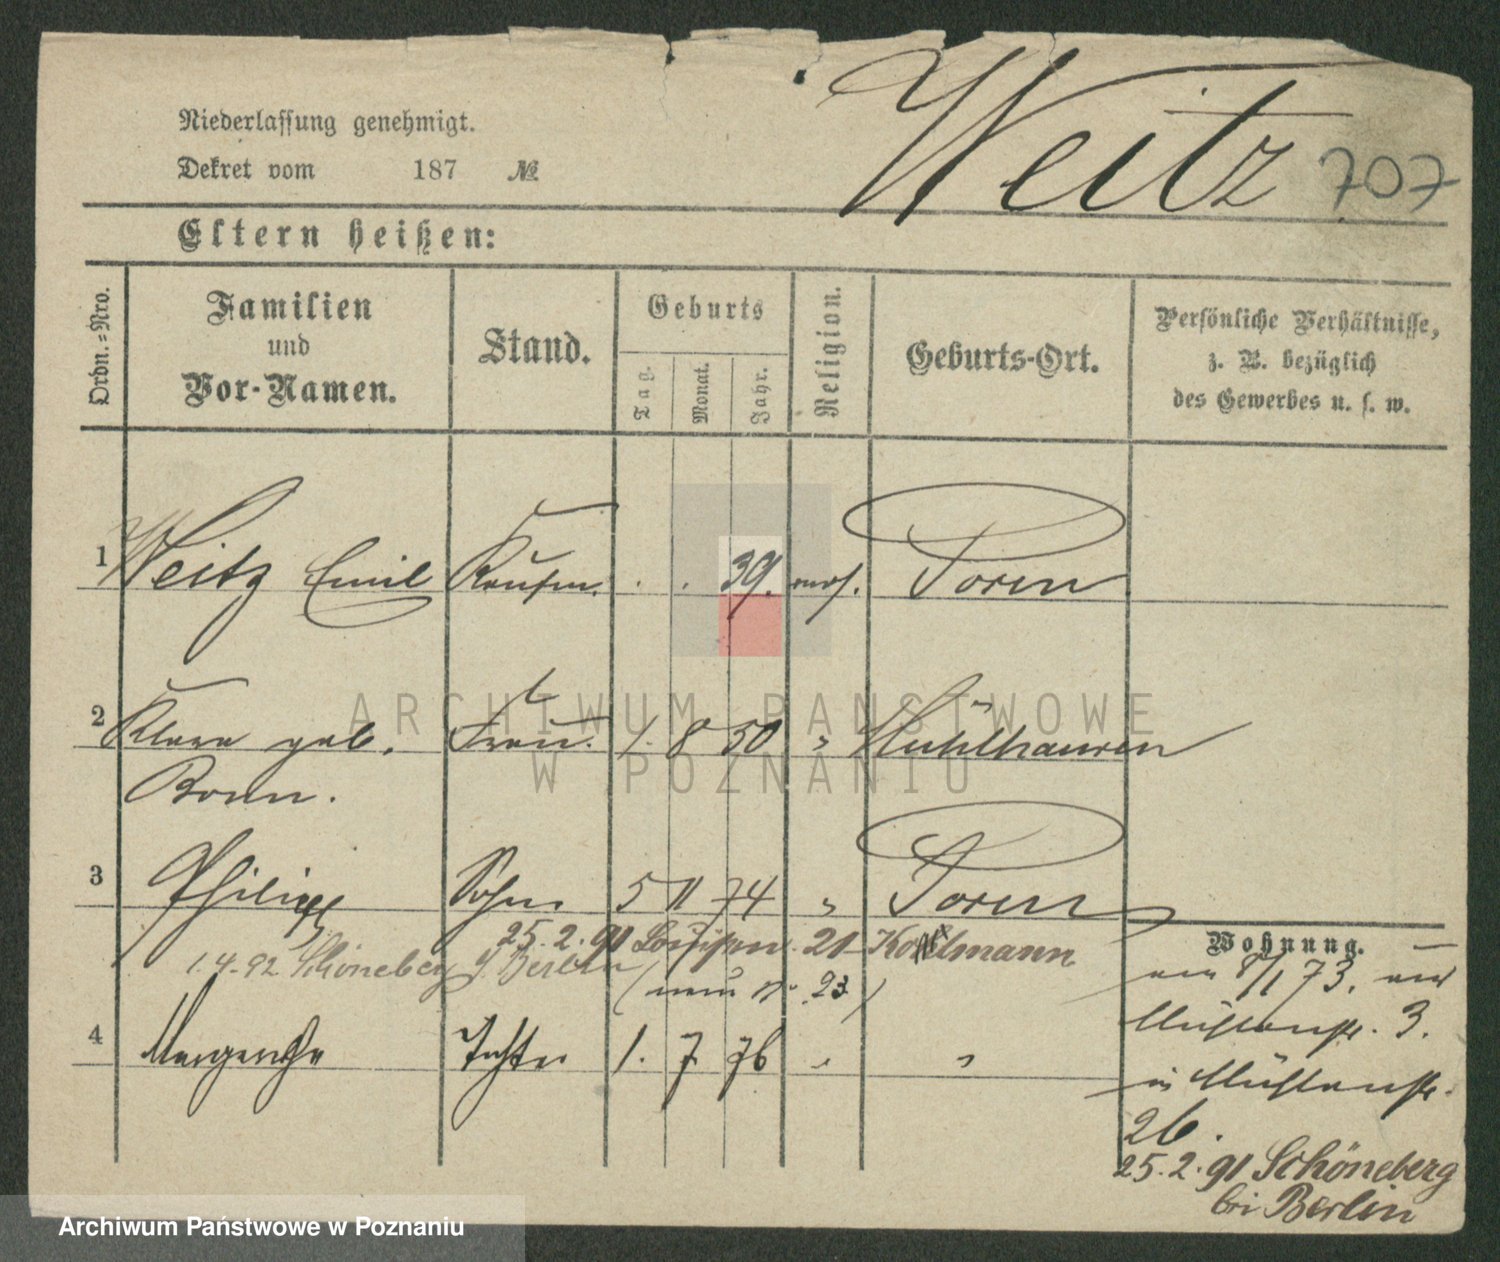 Weitz 707
Niederlassung genehmigt.
Dekret vom 187 №
Eltern heißen:
Ordn.-Nro.
Familien
und
Vor-Namen.
Stand.
Geburts
Tag.
Monat.
Jahr.
Religion.
Geburts-Ort.
Persönliche Verhältnisse,
z. B. bezüglich
des Gewerbes u. s. w.
1 Weitz Emil Kaufm. 39. mos. Posen
2 Klara geb. Frau. 1. 8 50 " Mühlhausen
Bonn.
3 Philipp Sohn 5 11 74 " Posen
25. 2. 91 Louisen 21 Kottmann
1.4.92 Schöneberg b/ Berlin (neue N. 23)
4 Margarethe Tochter 1. 7. 76 " "
Wohnung.
8/1 73.
Mühlenstr. 3.
in Mühlenstr.
26.
25. 2. 91 Schöneberg
bei Berlin
ARCHIWUM PAŃSTWOWE
W POZNANIU
Archiwum Państwowe w Poznaniu